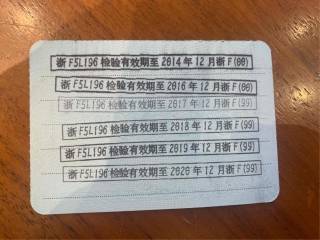 浙F5L196检验有效期至2014年12月浙F(00)
浙F5L196检验有效期至2016年12月浙F(00)
浙F5L196检验有效期至2017年12月浙F(99)
浙F5L196检验有效期至2018年12月浙F(99)
浙F5L196检验有效期至2019年12月浙F(99)
浙F5L196检验有效期至2020年12月浙F(99)